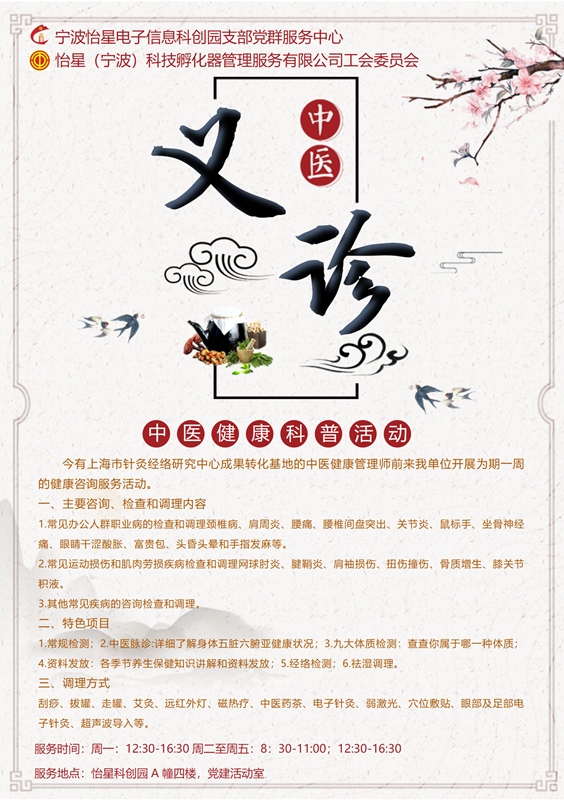 宁波怡星电子信息科创园支部党群服务中心
怡星（宁波）科技孵化器管理服务有限公司工会委员会
中医
义诊
中医健康科普活动
今有上海市针灸经络研究中心成果转化基地的中医健康管理师前来我单位开展为期一周
的健康咨询服务活动。
一、主要咨询、检查和调理内容
1.常见办公人群职业病的检查和调理颈椎病、肩周炎、腰痛、腰椎间盘突出、关节炎、鼠标手、坐骨神经
痛、眼睛干涩酸胀、富贵包、头昏头晕和手指发麻等。
2.常见运动损伤和肌肉劳损疾病检查和调理网球肘炎、腱鞘炎、肩袖损伤、扭伤撞伤、骨质增生、膝关节
积液。
3.其他常见疾病的咨询检查和调理。
二、特色项目
1.常规检测；2.中医脉诊:详细了解身体五脏六腑亚健康状况；3.九大体质检测：查查你属于哪一种体质；
4.资料发放：各季节养生保健知识讲解和资料发放；5.经络检测；6.祛湿调理。
三、调理方式
刮痧、拔罐、走罐、艾灸、远红外灯、磁热疗、中医药茶、电子针灸、弱激光、穴位敷贴、眼部及足部电
子针灸、超声波导入等。
服务时间：周一：12:30-16:30 周二至周五：8：30-11:00；12:30-16:30
服务地点：怡星科创园 A 幢四楼，党建活动室